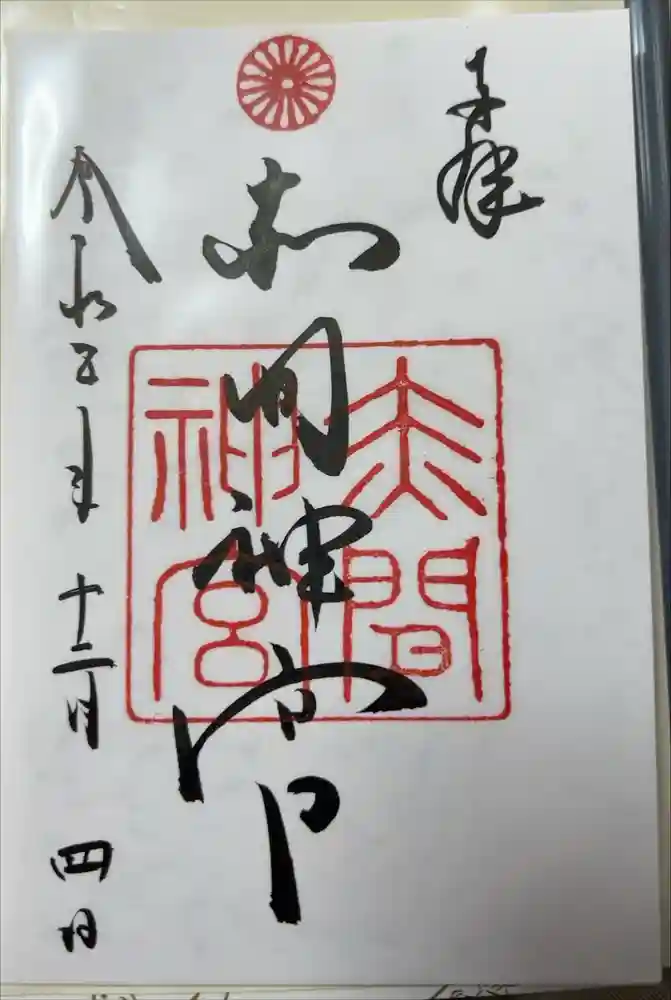 奉拝
赤間神宮
赤間
神宮
令和五年十二月四日